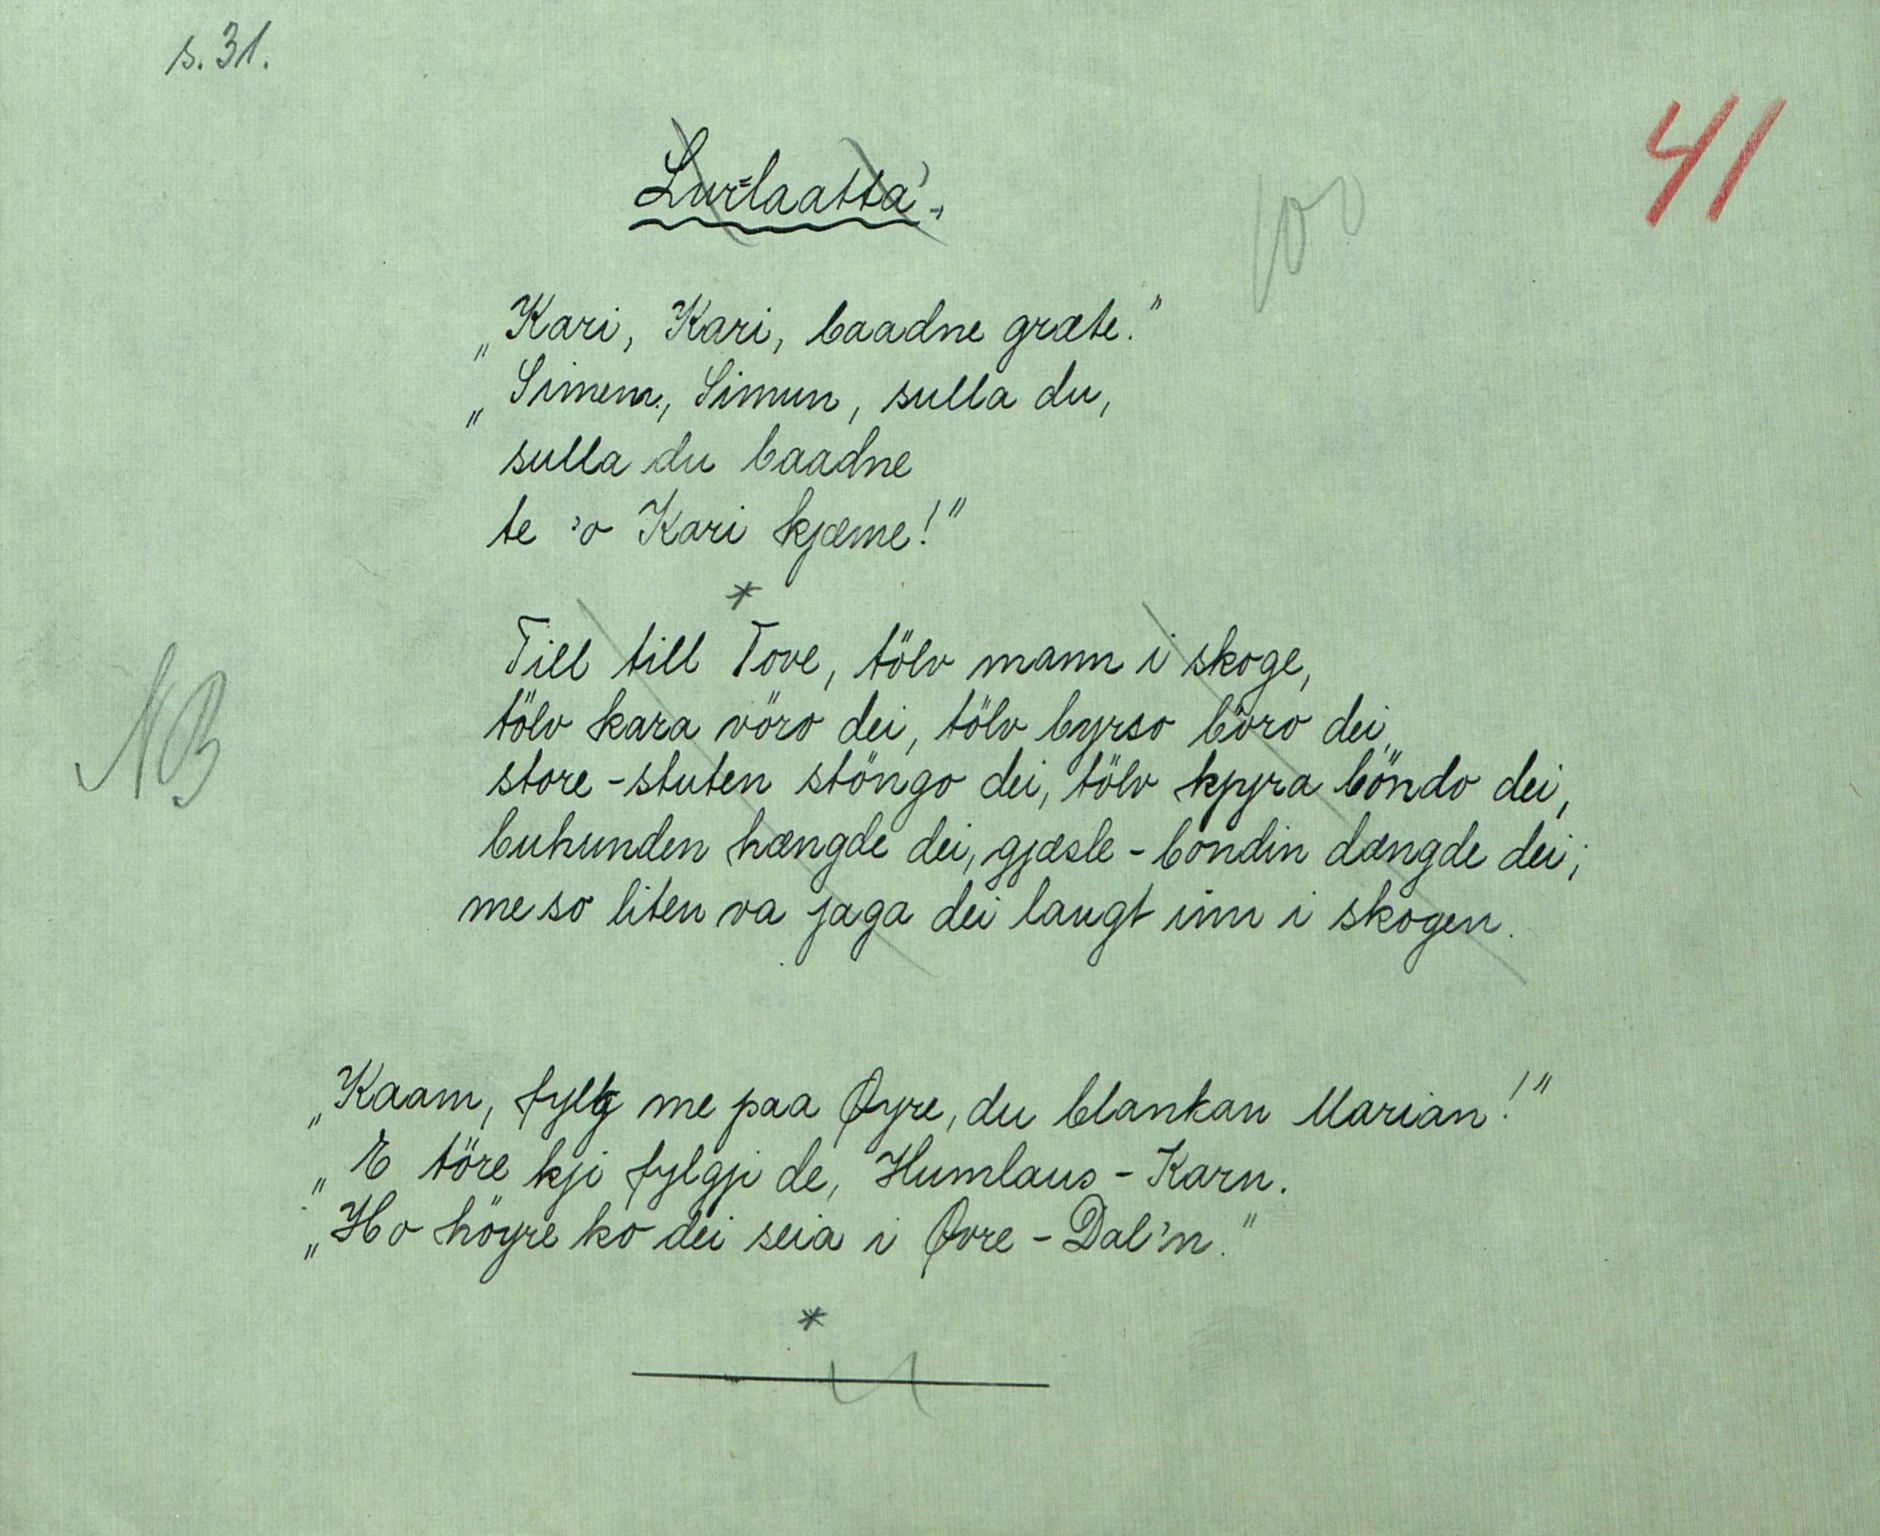 s. 31.
41
Lur-laatta'.
100
„Kari, Kari, baadne græte."
„Simen, Simun, sulla du,
sulla du baadne
te 'o Kari kjæme!"
*
Till till Tove, tölv mann i skoge,
tölv kara vöro dei, tölv byrso böro dei,
store-stuten stöngo dei, tölv kyra böndo dei,
buhunden hængde dei, gjæsle-bondin dængde dei;
me so liten va jaga dei langt inn i skogen.
NB
„Kaam, fylg me paa Øyre, du blankan Marian!"
„E töre kji fylgji de, Humlaus-Karn.
„Ho höyre ko dei seia i Øvre-Dal'n."
*